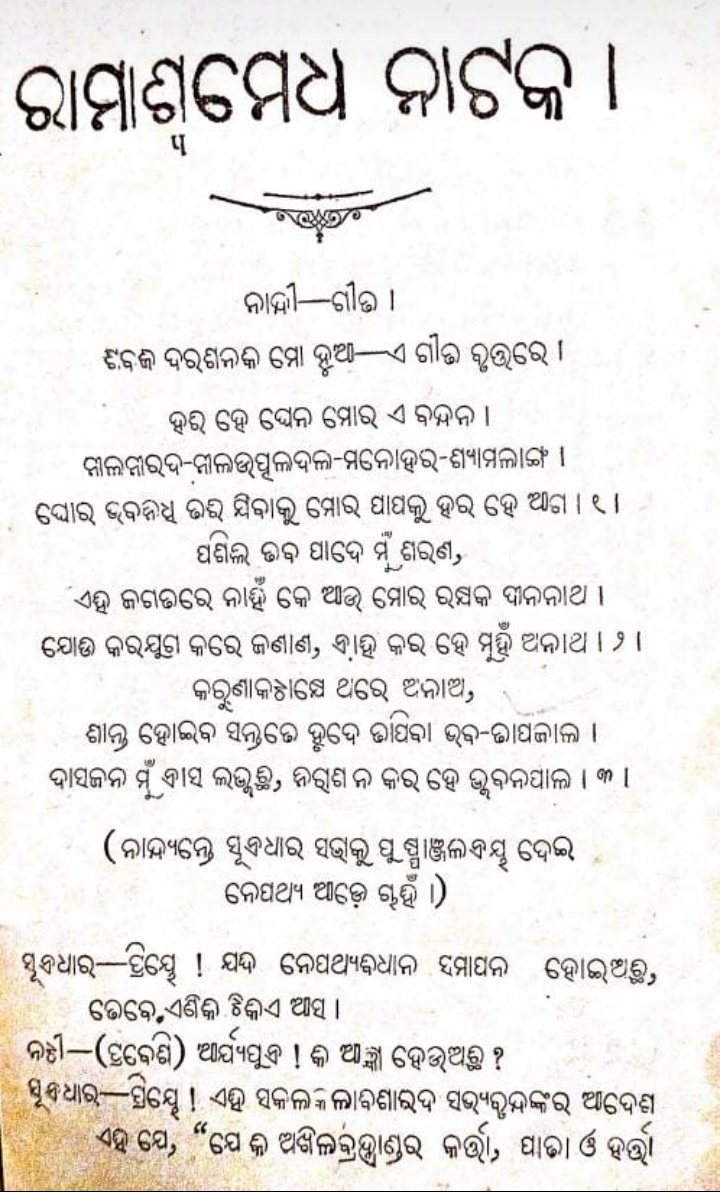 ରାମାଶ୍ୱମେଧ ନାଟକ ।
ନାନ୍ଦୀ—ଗୀତ ।
ଶବଜ ଦରଶନକ ମୋ ହୁଆ—ଏ ଗୀତ ବୃତ୍ତରେ ।
ହରି ହେ ଘେନ ମୋର ଏ ବନ୍ଦନ ।
ନୀଳନୀରଦ-ନୀଳଉତ୍ପଳଦଳ-ମନୋହର-ଶ୍ୟାମଳାଙ୍ଗ ।
ଘୋର ଭବନିଧି ତରି ଯିବାକୁ ମୋର ପାପକୁ ହର ହେ ଆଗ । ୧ ।
ପଶିଲି ତବ ପାଦେ ମୁଁ ଶରଣ,
ଏହି ଜଗତରେ ନାହିଁ କେ ଆଉ ମୋର ରକ୍ଷକ ଦୀନନାଥ ।
ଯୋଡି କରଯୁଗ କରେ ଜଣାଣ, ତ୍ରାହି କର ହେ ମୁହିଁ ଅନାଥ । ୨ ।
କରୁଣାକଟାକ୍ଷେ ଥରେ ଅନାଅ,
ଶାନ୍ତ ହୋଇବ ସନ୍ତତେ ହୃଦେ ତାପିବା ଭବ-ତାପଜାଲ ।
ଦାସଜନ ମୁଁ ତ୍ରାସ ଲଭୁଛି, ନିରାଶ ନ କର ହେ ଭୁବନପାଳ । ୩ ।
(ନାନ୍ଦ୍ୟନ୍ତେ ସୂତ୍ରଧାର ସଭାକୁ ପୁଷ୍ପାଞ୍ଜଳିତ୍ରୟ ଦେଇ
ନେପଥ୍ୟ ଆଡ଼େ ଚାହିଁ ।)
ସୂତ୍ରଧାର—ପ୍ରିୟେ ! ଯଦି ନେପଥ୍ୟବିଧାନ ସମାପନ ହୋଇଅଛି,
ତେବେ ଏଣିକି ଟିକିଏ ଆସ ।
ନଟୀ—(ପ୍ରବେଶି) ଆର୍ଯ୍ୟପୁତ୍ର ! କି ଆଜ୍ଞା ହେଉଅଛି ?
ସୂତ୍ରଧାର—ପ୍ରିୟେ ! ଏହି ସକଳକଳାବିଶାରଦ ସଭ୍ୟବୃନ୍ଦଙ୍କର ଆଦେଶ
ଏହି ଯେ, “ଯେ କି ଅଖିଳବ୍ରହ୍ମାଣ୍ଡର କର୍ତ୍ତା, ପାତା ଓ ହର୍ତ୍ତା